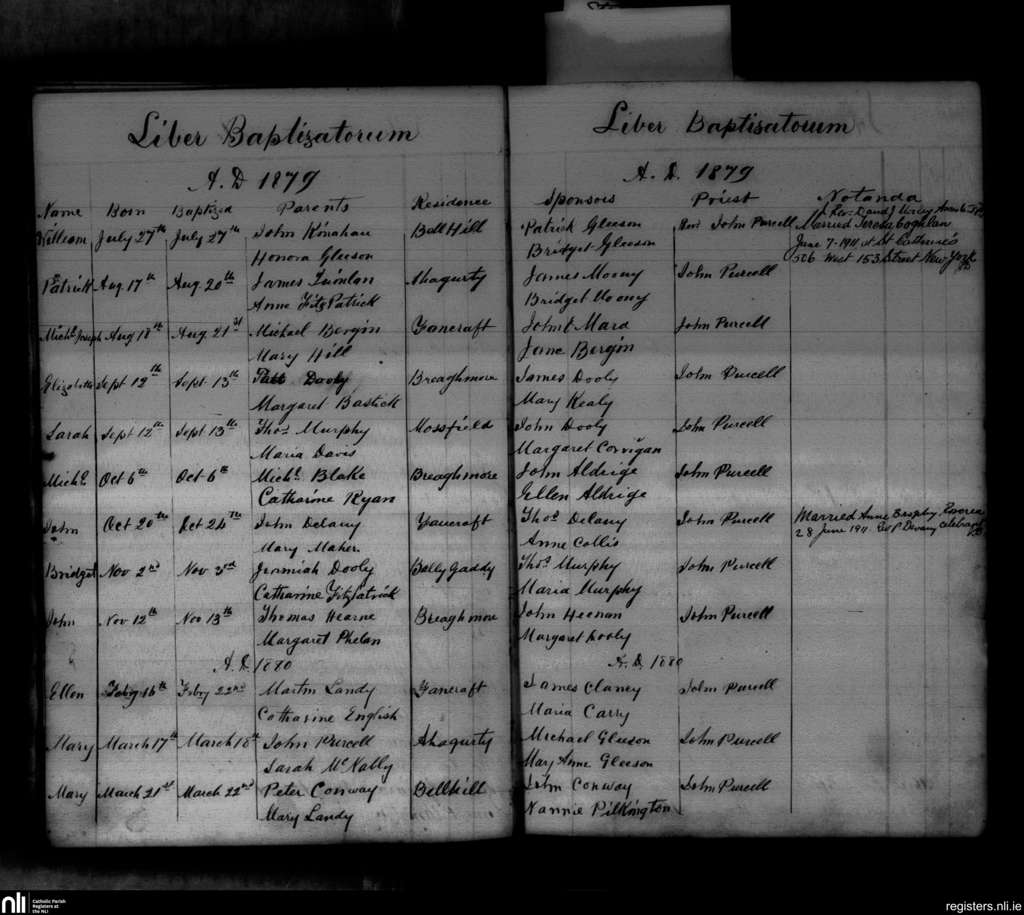 Liber Baptizatorum
A. D 1879
Name Born Baptized Parents Residence
William July 27th July 27th John Kinahan Bell Hill
Honora Gleeson
Patrick Aug. 17th Aug. 20th James Quinlan Ahagurty
Anne FitzPatrick
Michl. Joseph Aug 18th Aug. 21st Michael Bergin Yancraft
Mary Hill
Elizabeth Sept 12th Sept. 13th Patt Dooly Breaghmore
Margaret Bastick
Sarah Sept 12th Sept. 13th Thos. Murphy Mossfield
Maria Davis
Michl. Oct 6th Oct 6th Michl. Blake Breaghmore
Catharine Ryan
John Oct 20th Oct 24th John Delany Yancraft
Mary Maher
Bridget Nov 2nd Nov 3rd Jeremiah Dooly Bally Gaddy
Catharine Fitzpatrick
John Nov 12th Nov 13th Thomas Hearne Breaghmore
Margaret Phelan
A. D. 1880
Ellen Febry 16th Febry 22nd Martin Landy Yancraft
Catharine English
Mary March 17th March 18th John Purcell Ahagurty
Sarah McNally
Mary March 21st March 22nd Peter Conway Bellhill
Mary Landy
Liber Baptisatorum
A. D. 1879
Sponsors Priest Notanda
Patrick Gleeson Revd. John Purcell Married Teresa Coghlan
Bridget Gleeson June 7-1911 at St Catherine's
506 West 153 Street New York
James Moony John Purcell
Bridget Moony
John Mara John Purcell
Jane Bergin
James Dooly John Purcell
Mary Kealy
John Dooly John Purcell
Margaret Corrigan
John Aldrige John Purcell
Ellen Aldrige
Thos Delany John Purcell Married Anne Brophy, Roscrea
Anne Collis 28 June 1911
Thos. Murphy John Purcell
Maria Murphy
John Heenan John Purcell
Margaret Dooly
A. D. 1880
James Clancy John Purcell
Maria Carry
Michael Gleeson John Purcell
Mary Anne Gleeson
John Conway John Purcell
Nannie Pilkington
nli Catholic Parish
Registers at
the NLI
registers.nli.ie